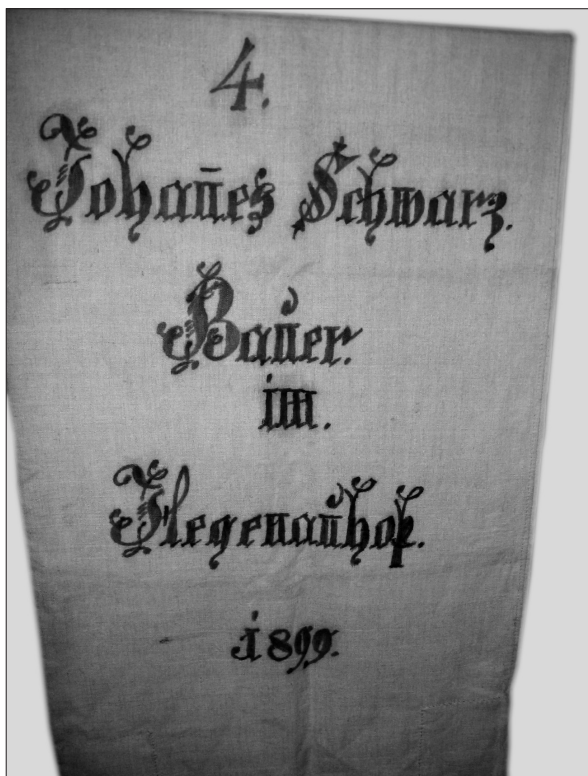 4.
Johan̄es Schwarz.
Bauer.
im.
Jlegenauhof.
1899.